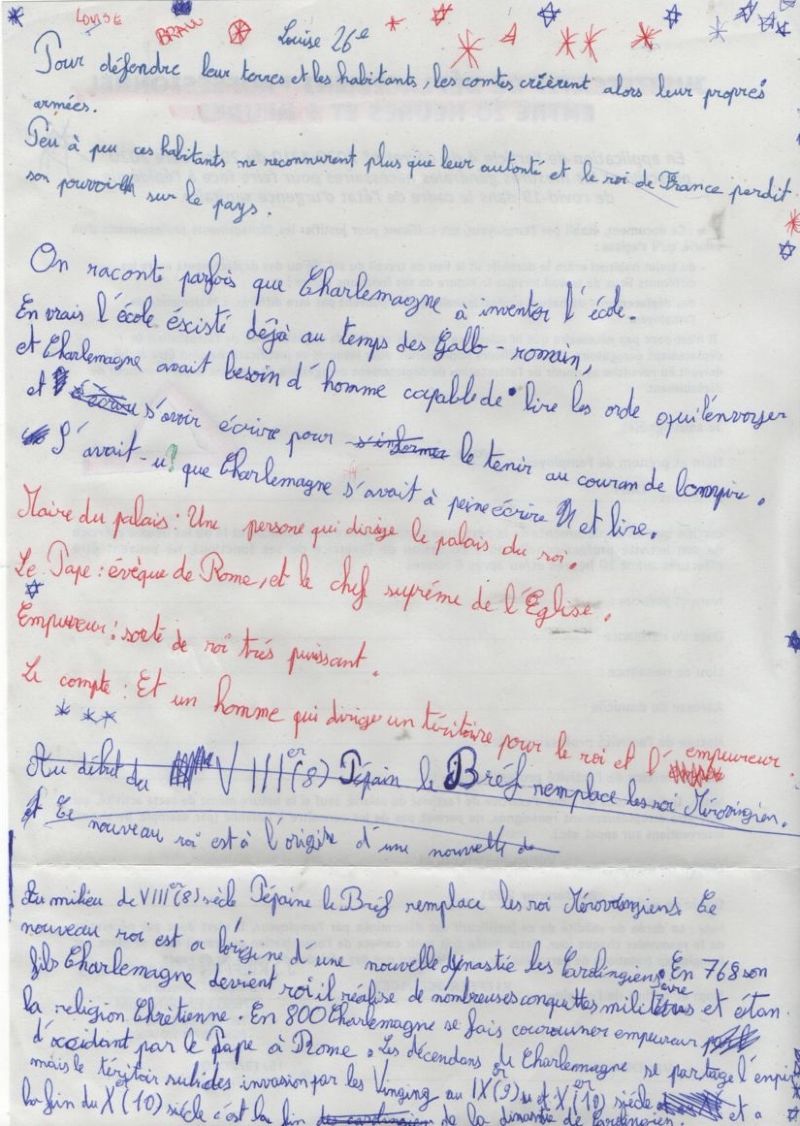 LOUISE
BRAU
Louise 26e
Pour défendre leur terres et les habitants, les comtes créèrent alors leur propres
armées.
Peu à peu ces habitants ne reconnurent plus que leur autorité et le roi de France perdit
son pouvoir sur le pays.
On raconte parfois que Charlemagne à inventer l'école.
En vrais l'école éxisté déjà au temps des Gallo-romain,
et Charlemagne avait besoin d'homme capable de lire les orde qu'il envoyer
et s'avoir écrire pour le tenir au couran de l'empire.
S'avait-u? que Charlemagne s'avait à peine écrire et lire.
Maire du palais: Une persone qui dirige le palais du roi.
Le Pape: évèque de Rome, et le chef supréme de l'Eglise.
Empureur: sorte de roi trés puissant.
Le compte: Et un homme qui dirige un téritoire pour le roi et l'empureur.
Au début du VIIIer(8) Pépain le Bréf remplace les roi Mérovingien.
et Ce nouveau roi est à l'origine d'une nouvelle de
Au milieu de VIIIer(8) siècle Pépaine le Bréf remplace les roi Mérovingiens. Ce
nouveau roi est a l'origine d'une nouvelle dynastiée les Carolingiens. En 768 son
fils Charlemagne devient roi il réalise de nombreuses conquttes militères et étan
la religion Chrétienne. En 800 Charlemagne se fais couronner empureur
d'occidant par le Pape à Rome. Les décendans de Charlemagne se partage l'empir
mais le téritoir subi des invasion par les au IX(9) et X(10) siécle et a
la fin du X(10) siécle c'est la fin de la